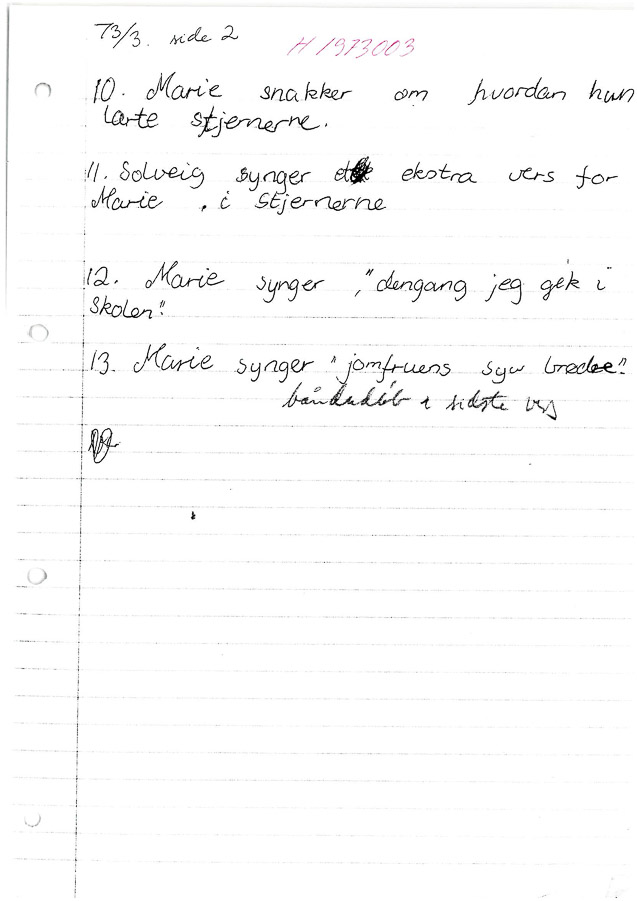 T3/3. side 2
H 1973003
10. Marie snakker om hvordan hun
lærte stjernerne.
11. Solveig synger ekstra vers for
Marie i stjernerne
12. Marie synger, "dengang jeg gék i
skolen".
13. Marie synger "jomfruens syv brødre".
båndudløb i sidste vers